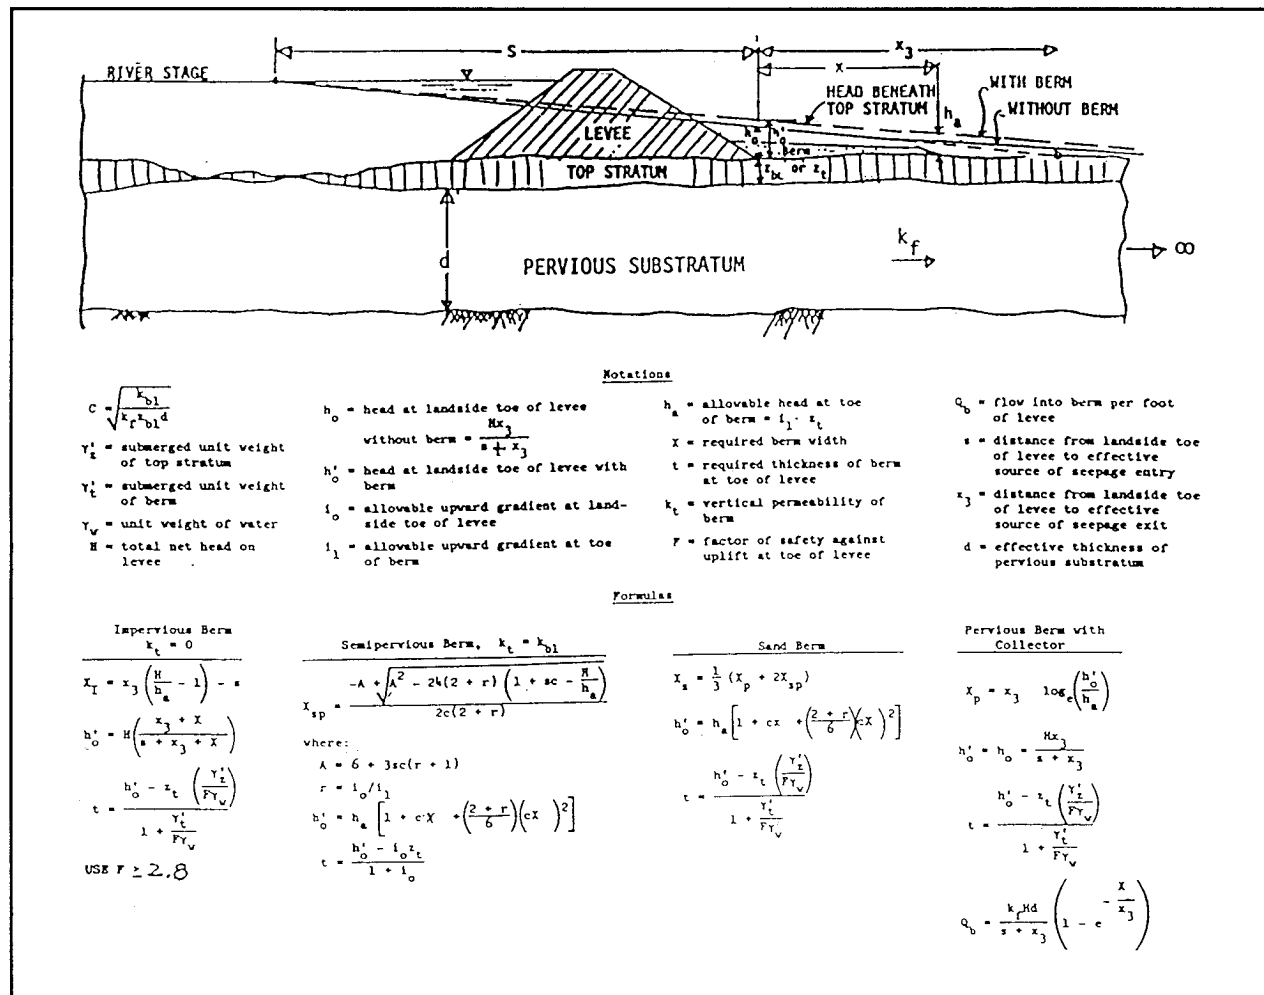 S
x₃
X
RIVER STAGE
HEAD BENEATH
TOP STRATUM
h_a
WITH BERM
WITHOUT BERM
LEVEE
h_o h'_o
berm
TOP STRATUM
z_bL or z_t
d
k_f
∞
PERVIOUS SUBSTRATUM
Notations
C = √(k_bl / (k_f z_bl d))
γ'_z = submerged unit weight
of top stratum
γ'_t = submerged unit weight
of berm
γ_w = unit weight of water
H = total net head on
levee
h_o = head at landside toe of levee
without berm = Hx₃ / (s + x₃)
h'_o = head at landside toe of levee with
berm
i_o = allowable upward gradient at land-
side toe of levee
i_1 = allowable upward gradient at toe
of berm
h_a = allowable head at toe
of berm = i_1 · z_t
X = required berm width
t = required thickness of berm
at toe of levee
k_t = vertical permeability of
berm
F = factor of safety against
uplift at toe of levee
Q_b = flow into berm per foot
of levee
s = distance from landside toe
of levee to effective
source of seepage entry
x₃ = distance from landside toe
of levee to effective
source of seepage exit
d = effective thickness of
pervious substratum
Formulas
Impervious Berm
k_t = 0
X_I = x₃ (H/h_a - 1) - s
h'_o = H((x₃ + X) / (s + x₃ + X))
t = (h'_o - z_t (γ'_z / Fγ_w)) / (1 + γ'_t / Fγ_w)
USE F ≥ 2.8
Semipervious Berm, k_t = k_bl
X_sp = (-A + √(A² - 24(2 + r) (1 + sc - H/h_a))) / (2c(2 + r))
where:
A = 6 + 3sc(r + 1)
r = i_o/i_1
h'_o = h_a [1 + cX + ((2 + r)/6)(cX)²]
t = (h'_o - i_o z_t) / (1 + i_o)
Sand Berm
X_s = 1/3 (X_p + 2X_sp)
h'_o = h_a [1 + cX + ((2 + r)/6)(cX)²]
t = (h'_o - z_t (γ'_z / Fγ_w)) / (1 + γ'_t / Fγ_w)
Pervious Berm with
Collector
X_p = x₃ log_e(h'_o / h_a)
h'_o = h_o = Hx₃ / (s + x₃)
t = (h'_o - z_t (γ'_z / Fγ_w)) / (1 + γ'_t / Fγ_w)
Q_b = (k_f Hd / (s + x₃)) (1 - e^(-X/x₃))